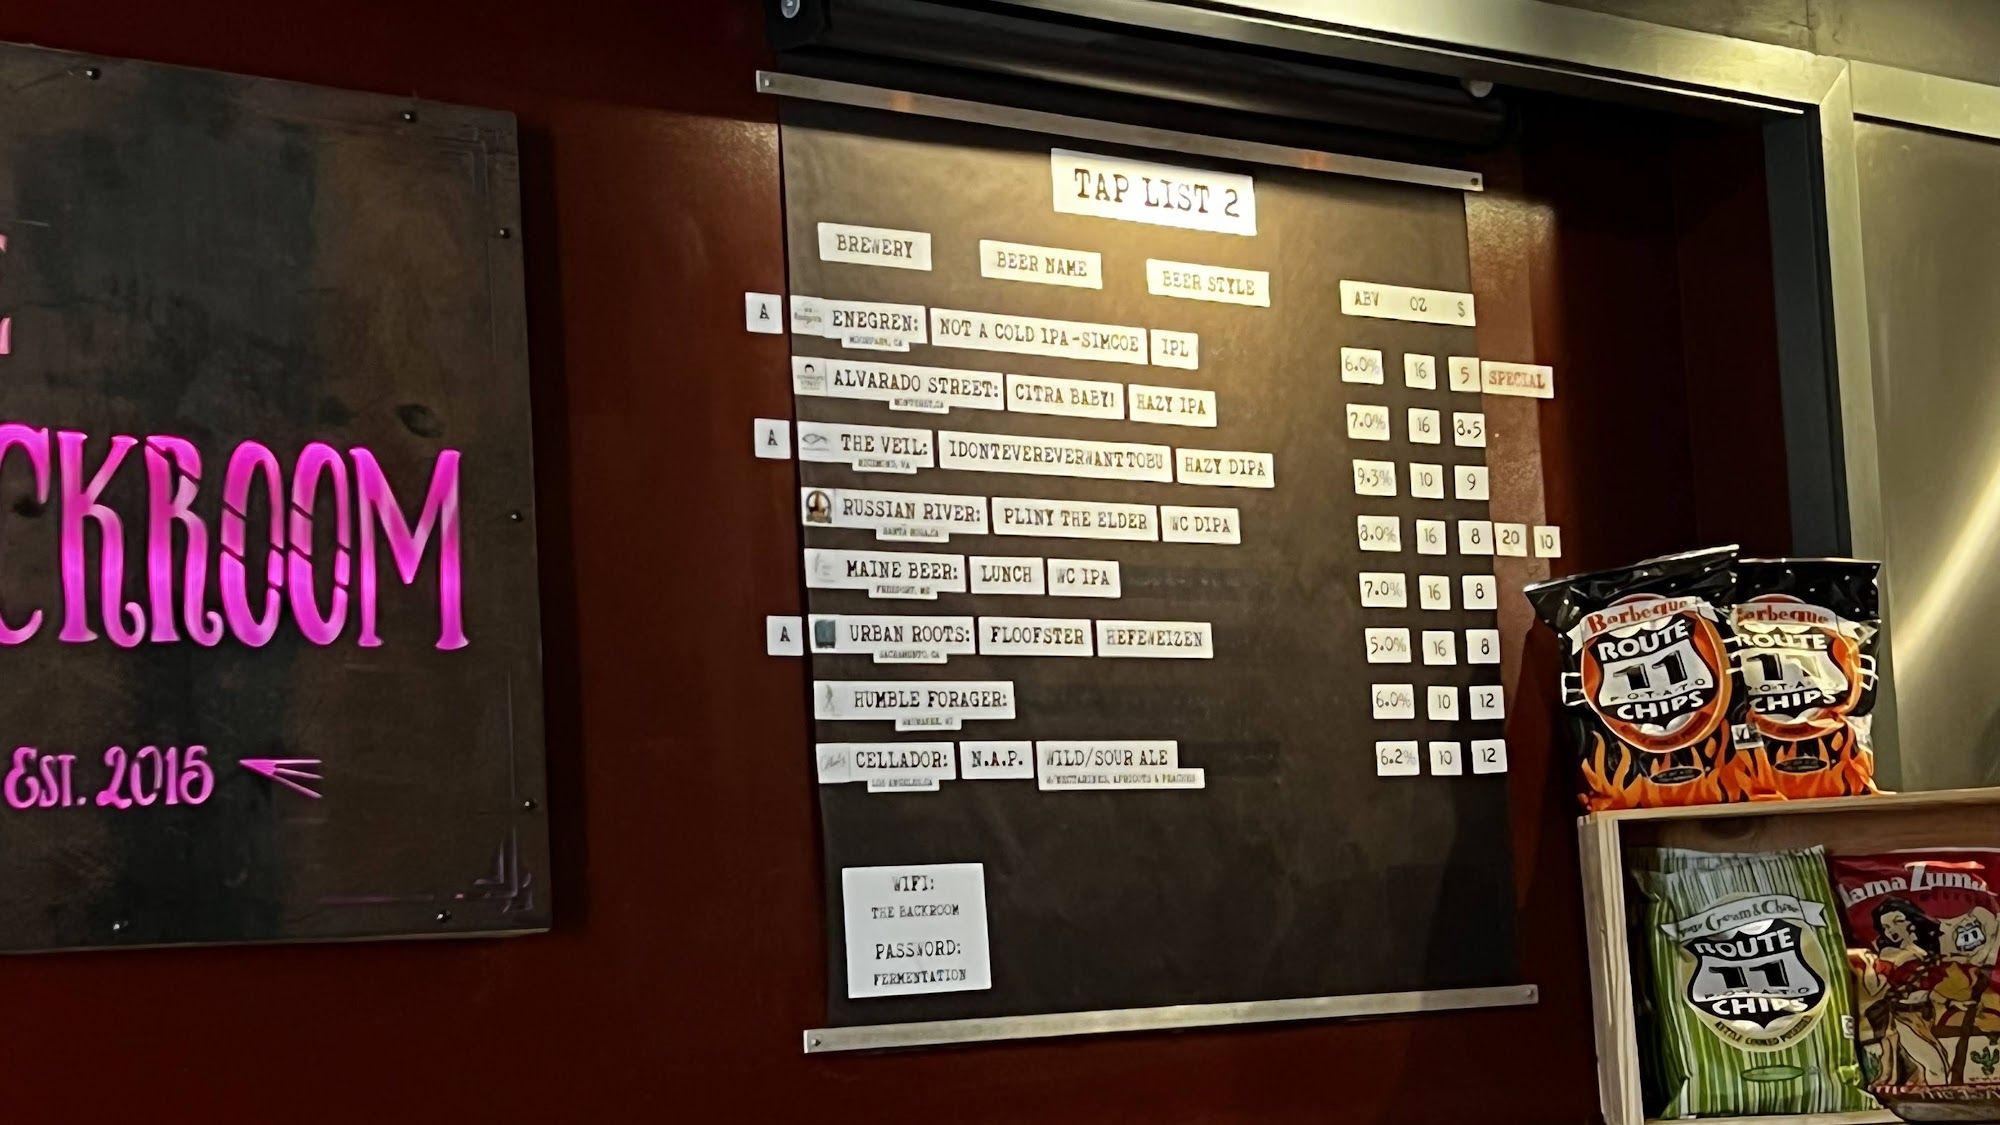 CKROOM
EST. 2015
TAP LIST 2
BREWERY BEER NAME BEER STYLE ABV OZ $
A ENEGREN: NOT A COLD IPA-SIMCOE IPL 6.0% 16 5 SPECIAL
MOORPARK, CA
ALVARADO STREET: CITRA BABY! HAZY IPA 7.0% 16 8.5
MONTEREY, CA
A THE VEIL: IDONTEVEREVERWANTTOBU HAZY DIPA 9.3% 10 9
RICHMOND, VA
RUSSIAN RIVER: PLINY THE ELDER WC DIPA 8.0% 16 8 20 10
SANTA ROSA, CA
MAINE BEER: LUNCH WC IPA 7.0% 16 8
FREEPORT, ME
A URBAN ROOTS: FLOOFSTER HEFEWEIZEN 5.0% 16 8
SACRAMENTO, CA
HUMBLE FORAGER: 6.0% 10 12
CELLADOR: N.A.P. WILD/SOUR ALE 6.2% 10 12
LOS ANGELES, CA W/NECTARINES, APRICOTS & PEACHES
WIFI:
THE BACKROOM
PASSWORD:
FERMENTATION
Barbeque
ROUTE
11
POTATO
CHIPS
Barbeque
ROUTE
11
POTATO
CHIPS
ROUTE
11
POTATO
CHIPS
KETTLE COOKED POTATOES
Mama Zuma